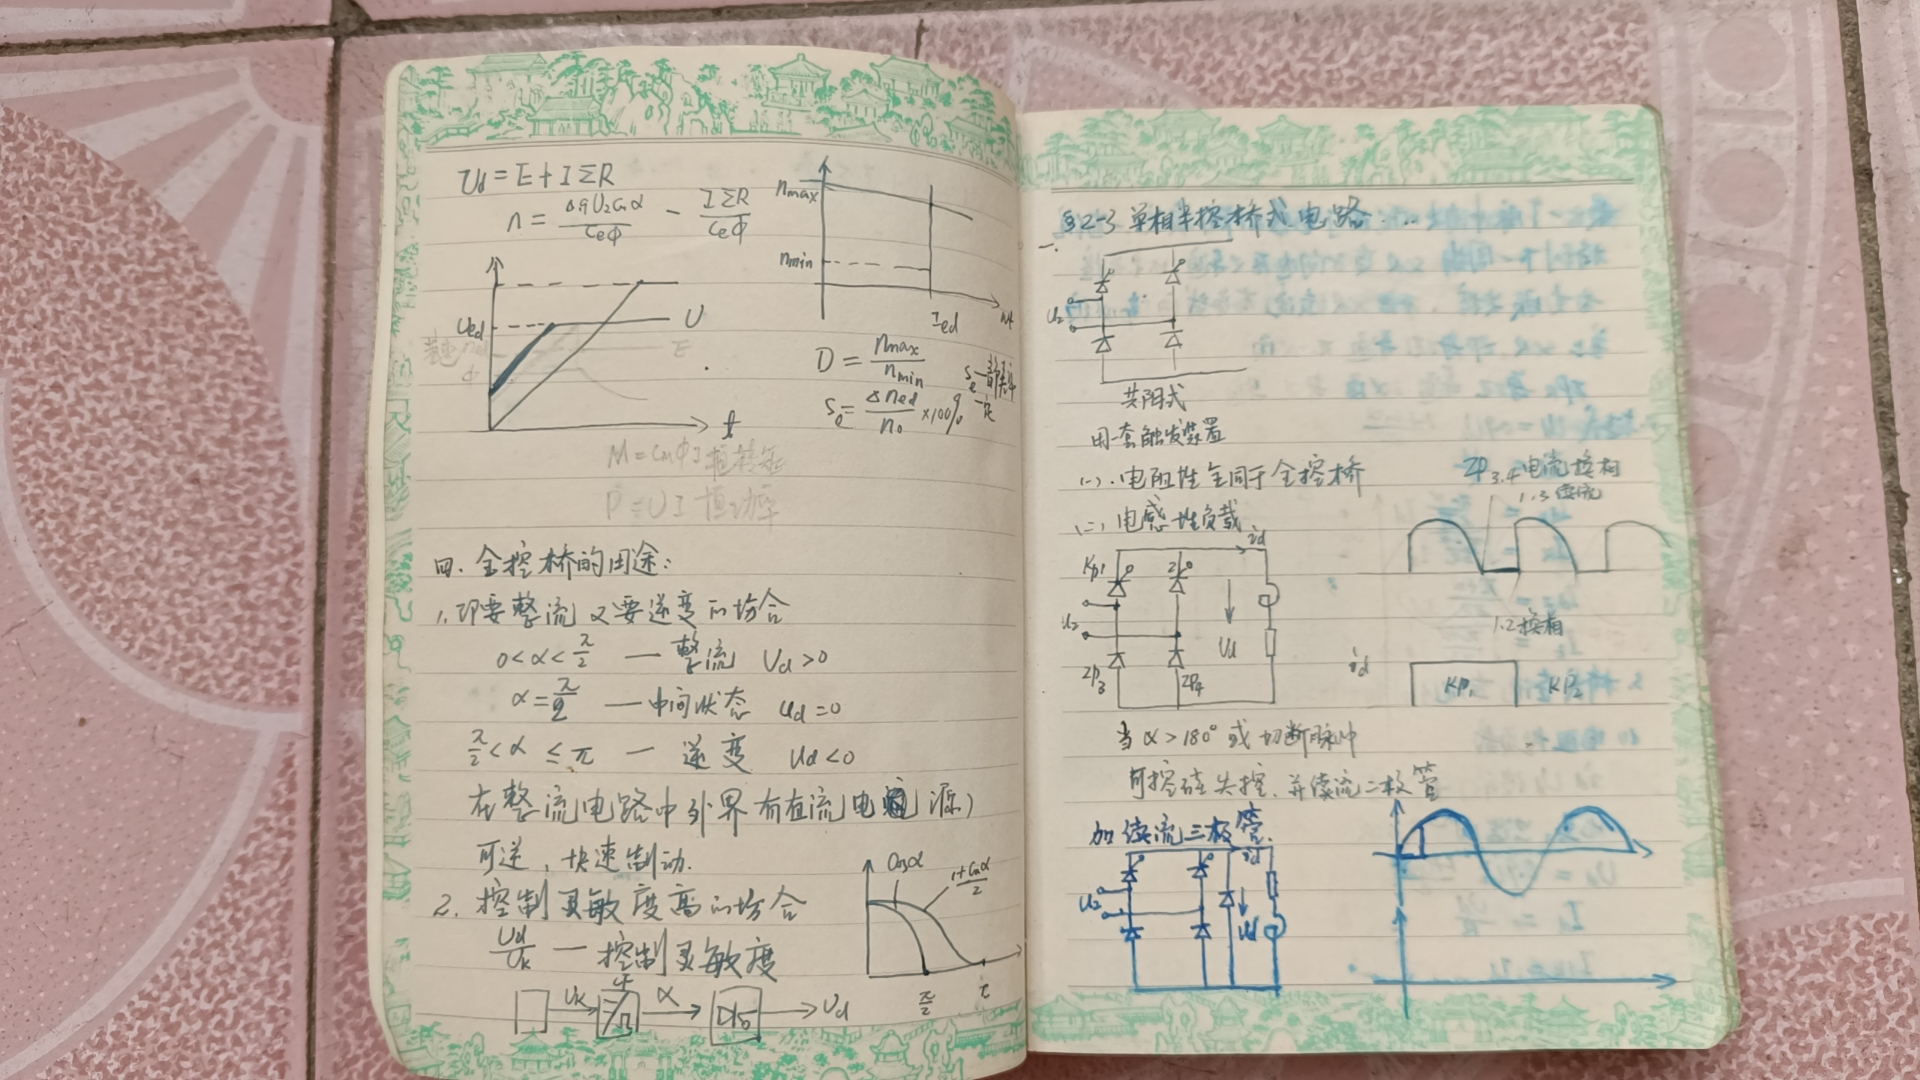 Ud = E + IΣR
n = 0.9U₂cosα/Ceφ − IΣR/Ceφ
nmax
nmin
Ied
M
Ued
U
E
t
D = nmax/nmin
Se = Δned/n₀ ×100%
Se—静差率
M = CmφI 恒转矩
P = UI 恒功率
四. 全控桥的用途:
1. 即要整流又要逆变的场合
0<α<π/2 — 整流 Ud>0
α=π/2 — 中间状态 Ud=0
π/2<α≤π — 逆变 Ud<0
在整流电路中外界有直流电源)
可逆, 快速制动.
2. 控制灵敏度高的场合
Ud/Uk — 控制灵敏度
Cosα
1+Cosα/2
π/2
π
Uk
α
Ud
§2-3 单相半控桥式电路
一.
U₂
共阳式
用一套触发装置
(一). 电阻性全同于全控桥
(二) 电感性负载
KP1
id
U₂
Ud
ZP3
ZP4
ZP3.4电流换相
1.3续流
1.2换相
id
KP1
KP2
当α>180°或切断脉冲
可控硅失控. 并续流二极管
加续流二极管.
id
U₂
Ud